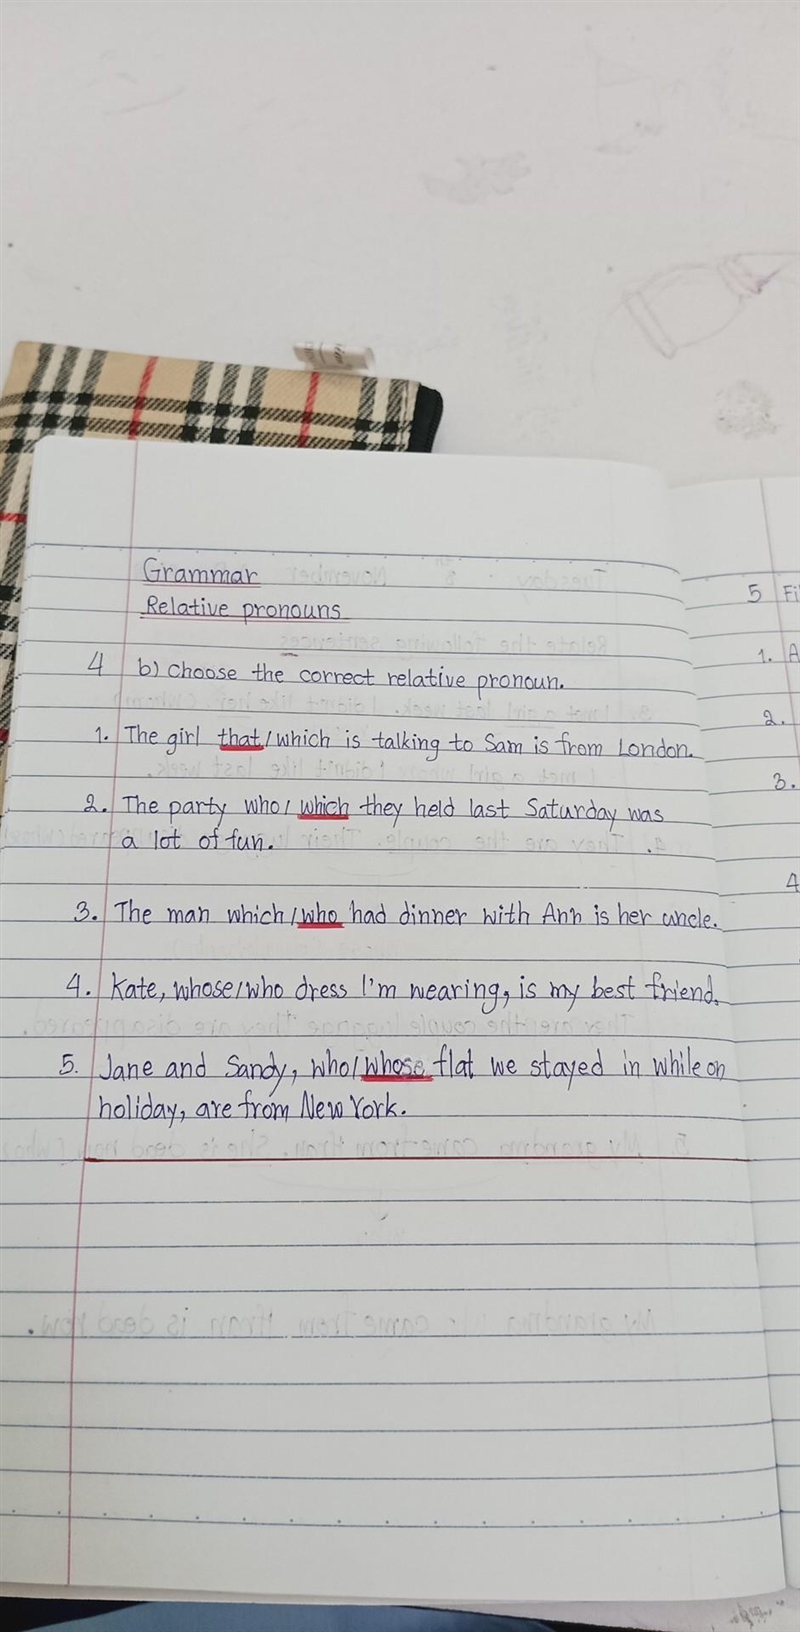 Grammar
Relative pronouns
4 b) choose the correct relative pronoun.
1. The girl that/which is talking to Sam is from London.
2. The party who/which they held last Saturday was
a lot of fun.
3. The man which/who had dinner with Ann is her uncle.
4. Kate, whose/who dress I'm wearing, is my best friend.
5. Jane and Sandy, who/whose flat we stayed in while on
holiday, are from New York.
5 Fi
1. A
2.
3.
4